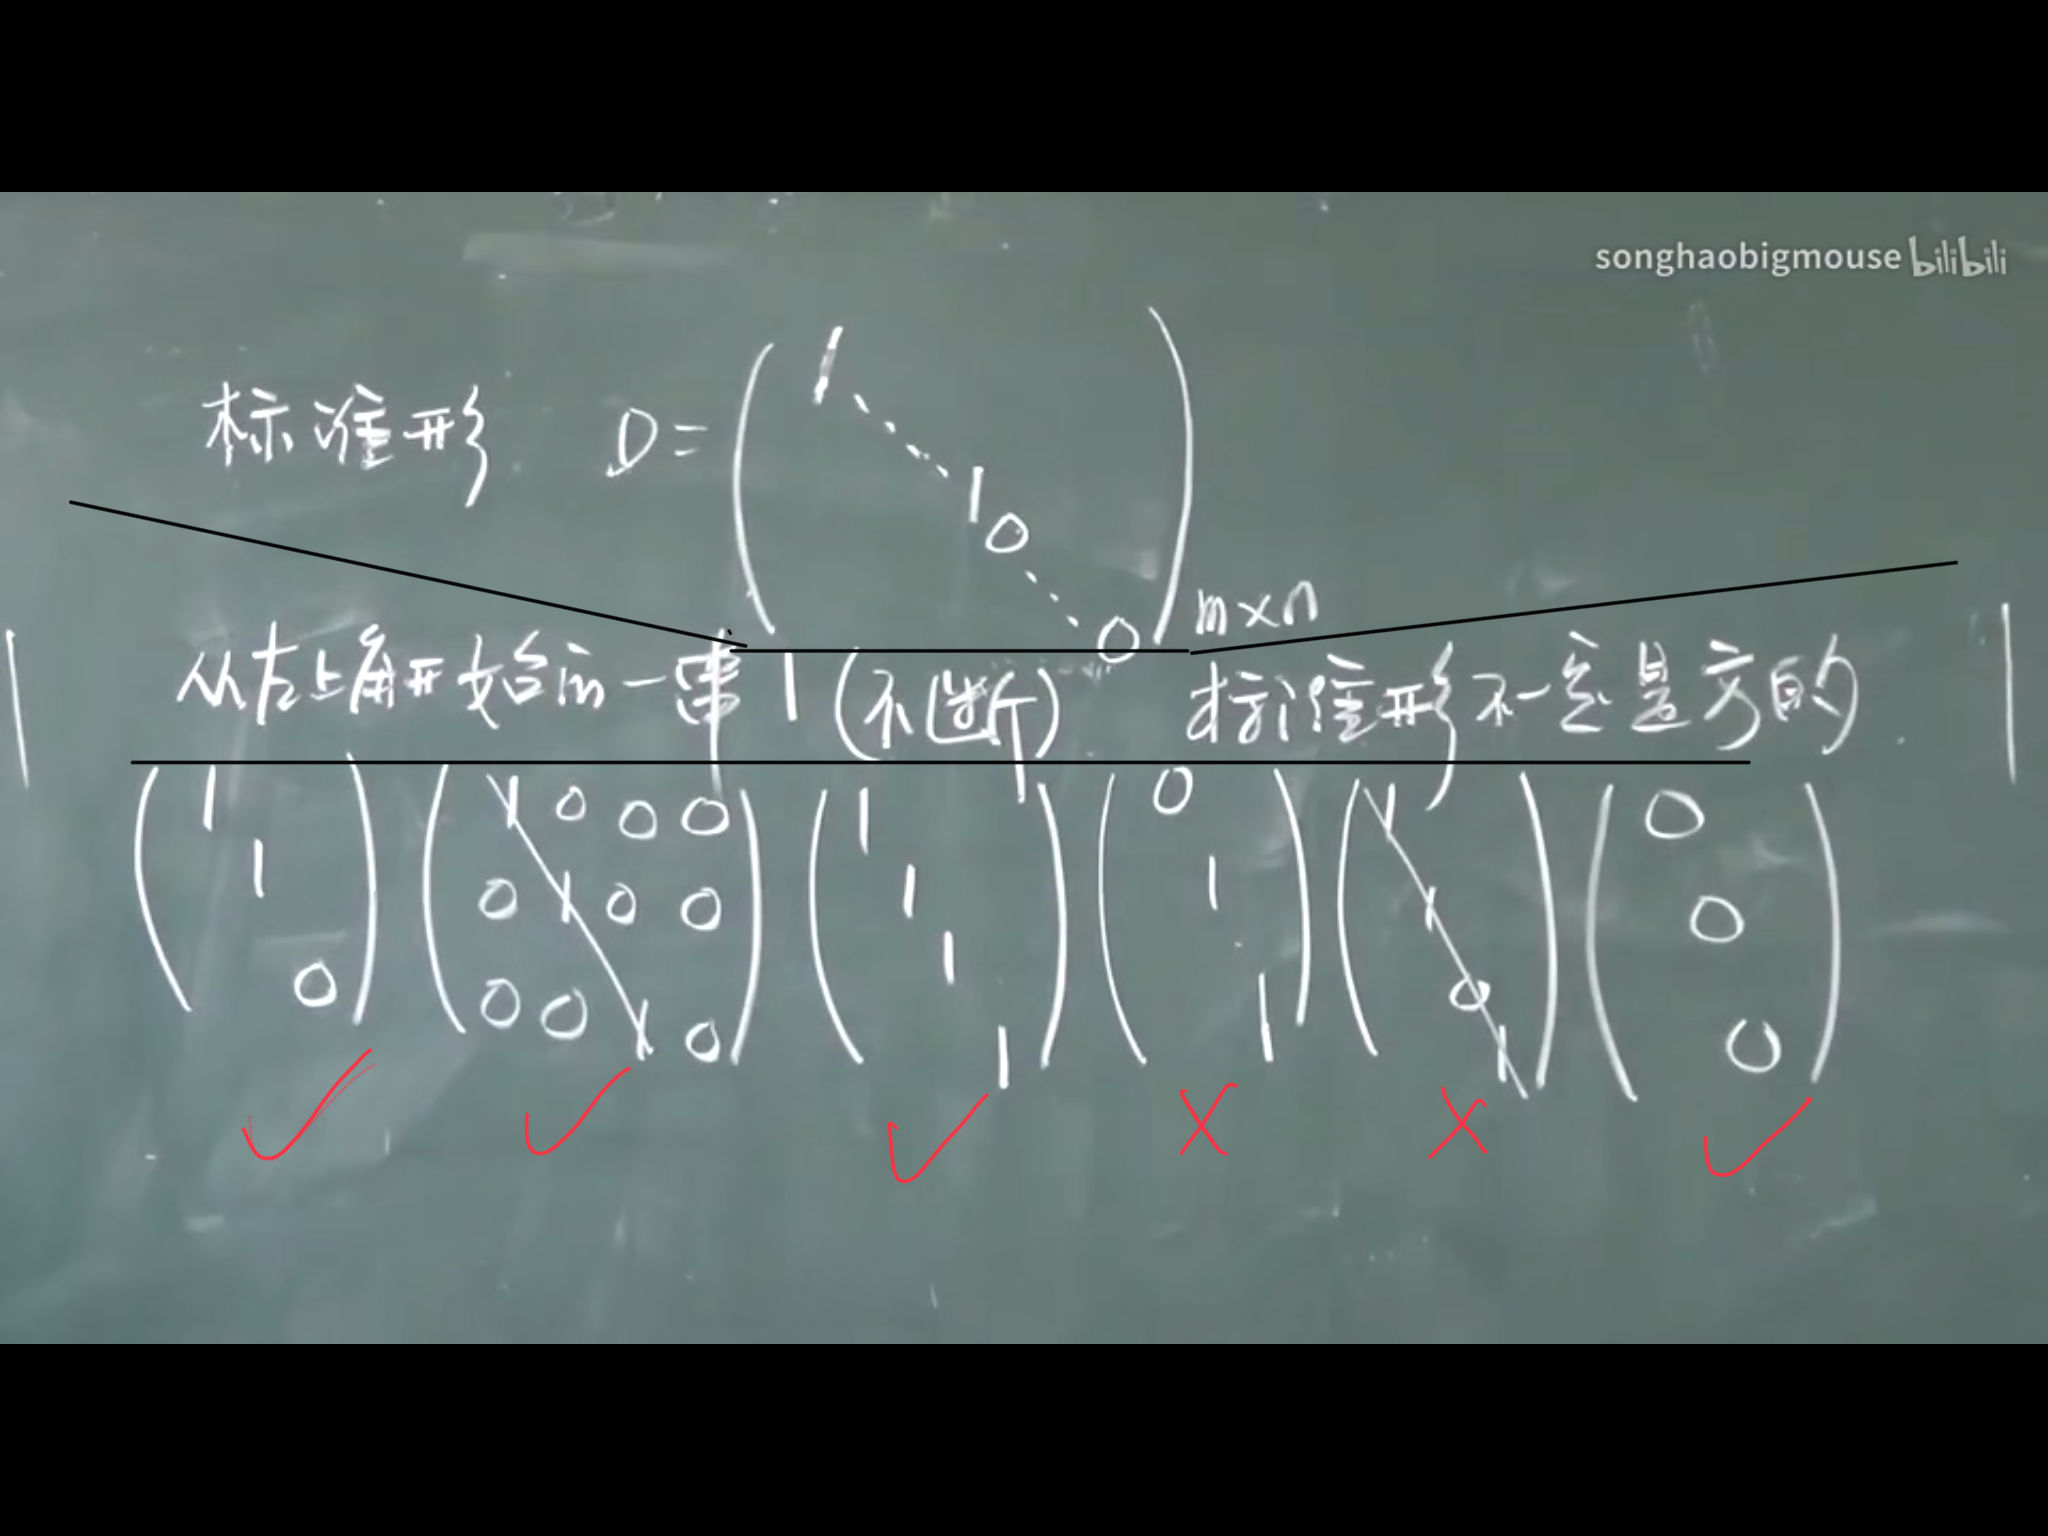 songhaobigmouse bilibili
标准形 D = ( 1 ⋱ 1 0 ⋱ 0 ) m×n
从左上角开始的一串1(不断) 标准形不一定是方的.
( 1 1 0 ) ( 1 0 0 0 ( 1 1 1 1 ) ( 0 1 1 ) ( 1 1 0 1 ) ( 0 0 0 )
0 1 0 0
0 0 1 0 )
✓ ✓ ✓ X X ✓